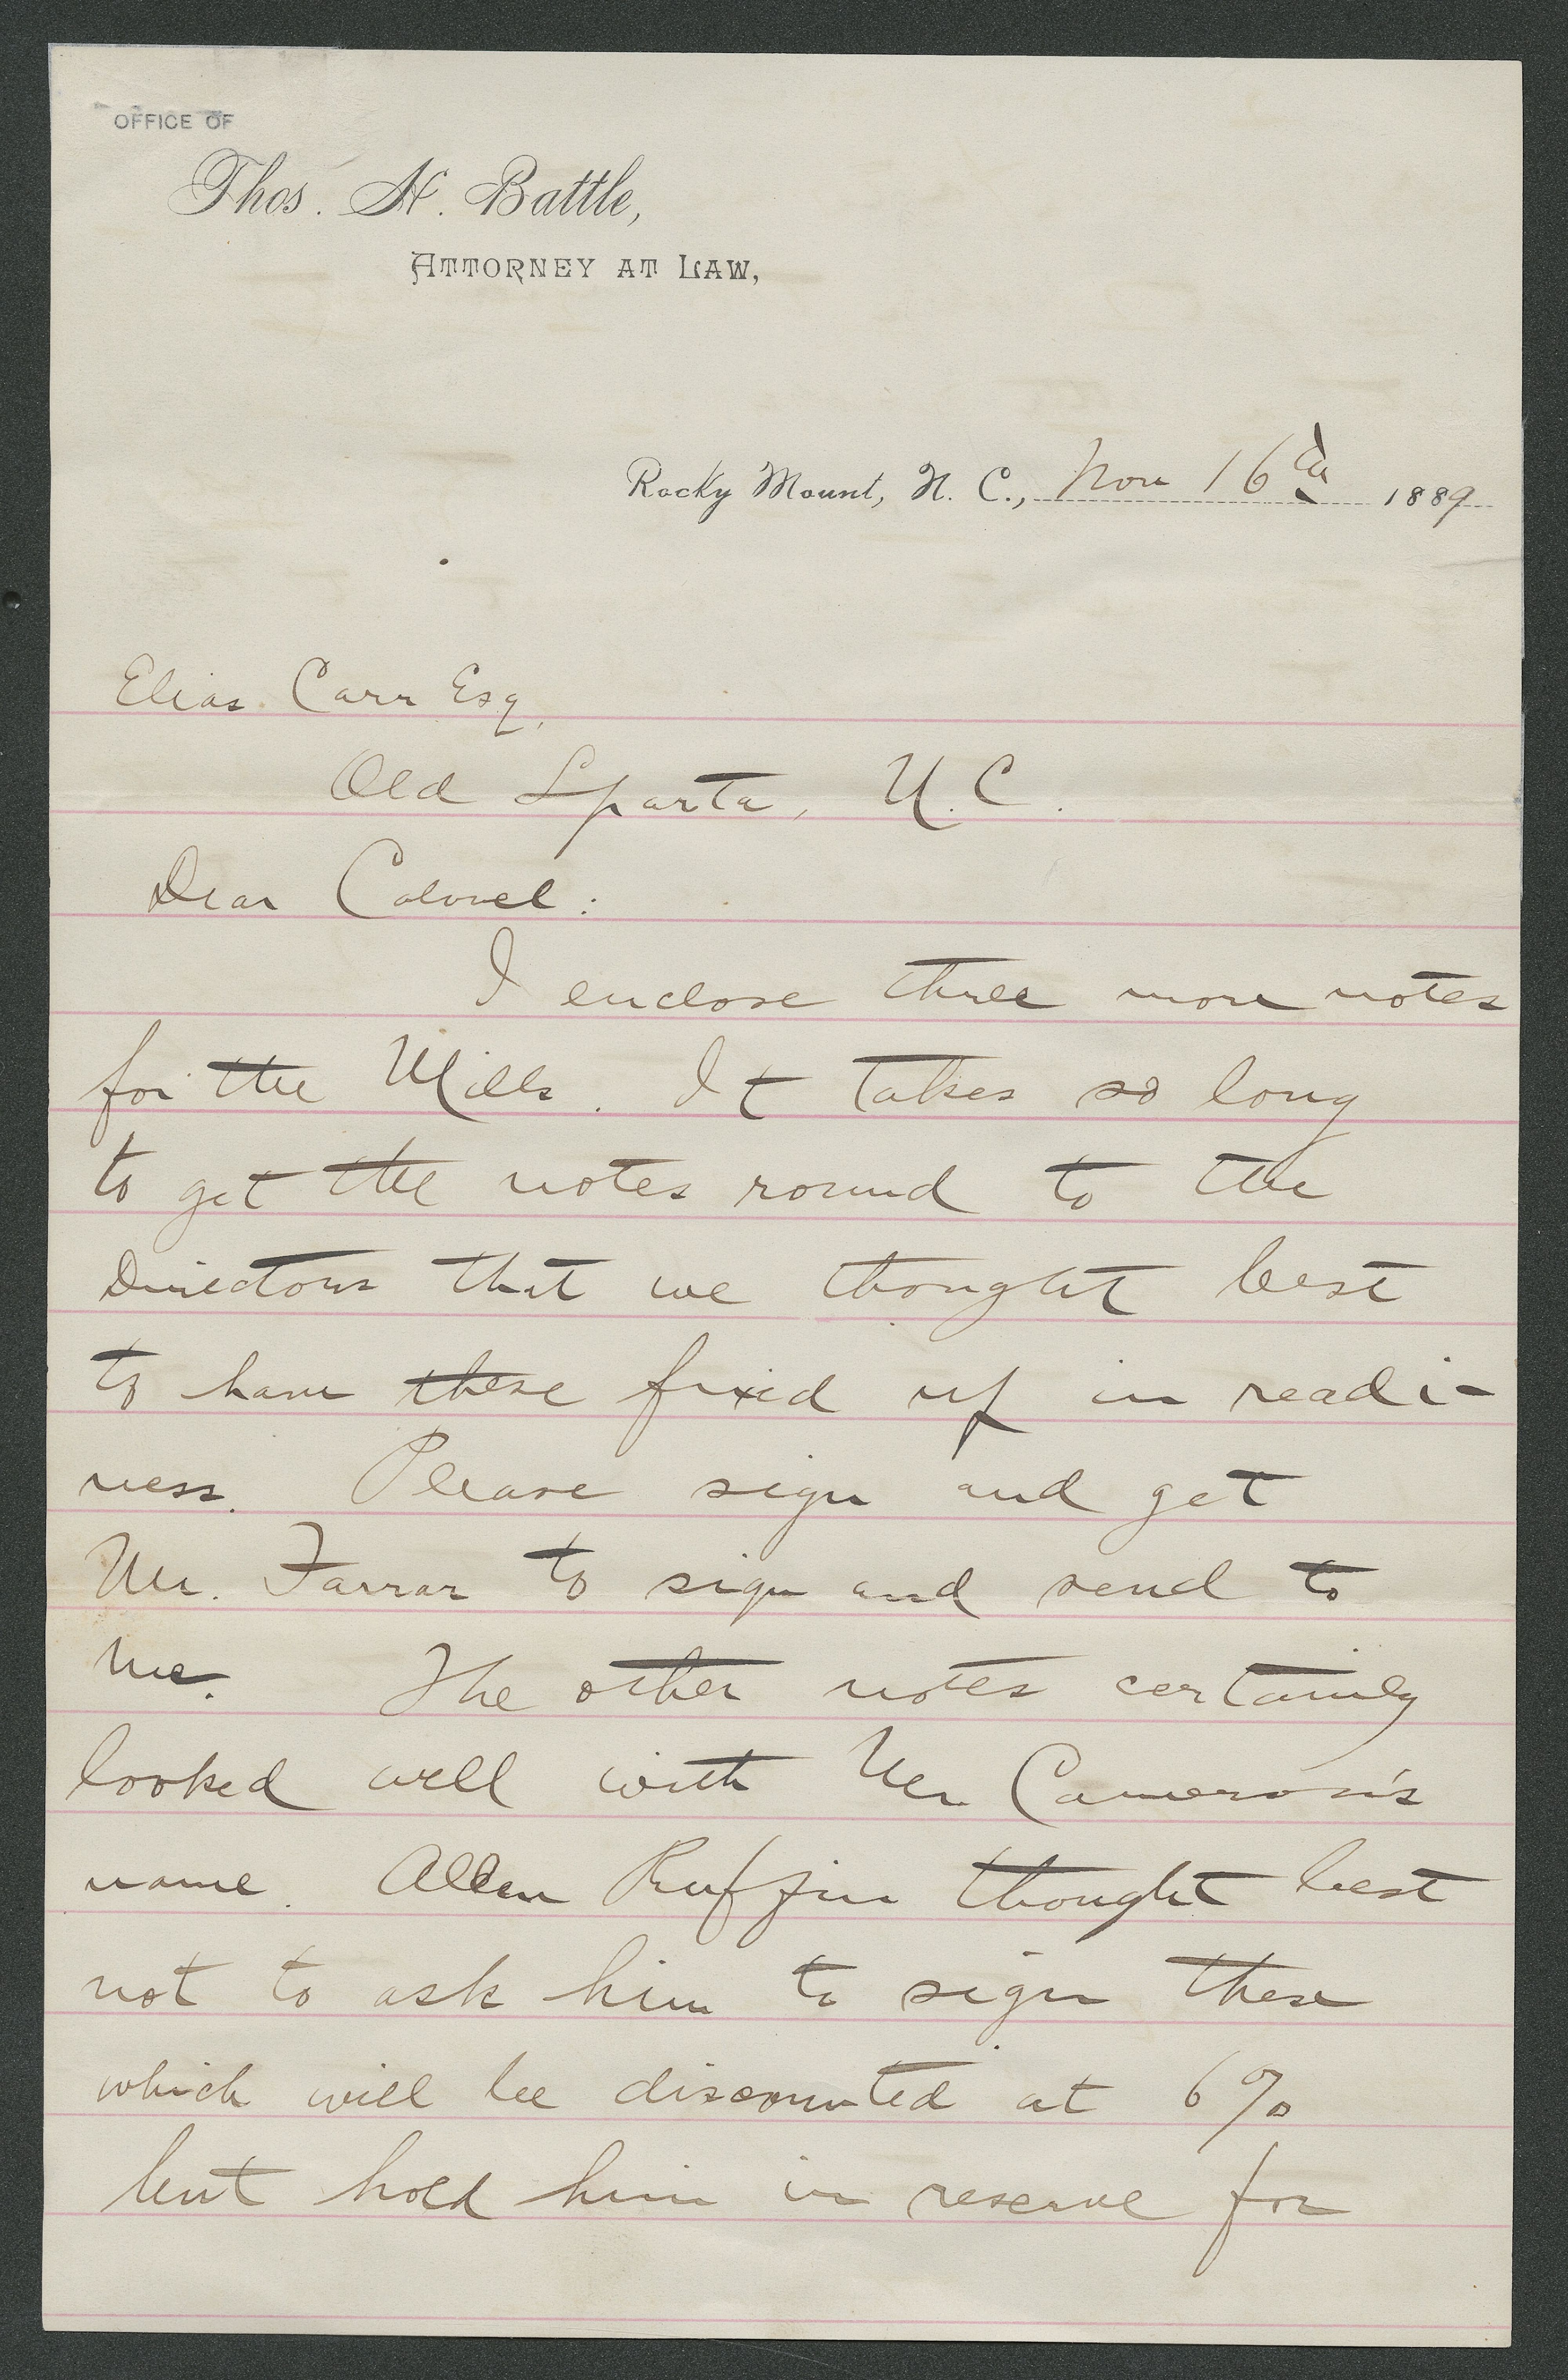 OFFICE OF
Thos. H. Battle,
ATTORNEY AT LAW,
Rocky Mount, N. C., Nov 16th 1889
Elias Carr Esq,
Old Sparta, N.C.
Dear Colonel:
I enclose three more notes
for the Mills. It takes so long
to get the notes round to the
Directors that we thought best
to have these fixed up in readi-
ness. Please sign and get
Mr. Farrar to sign and send to
me. The other notes certainly
looked well with Mr Cameron's
name. Allen Ruffin thought best
not to ask him to sign these
which will be discounted at 6%
but hold him in reserve for